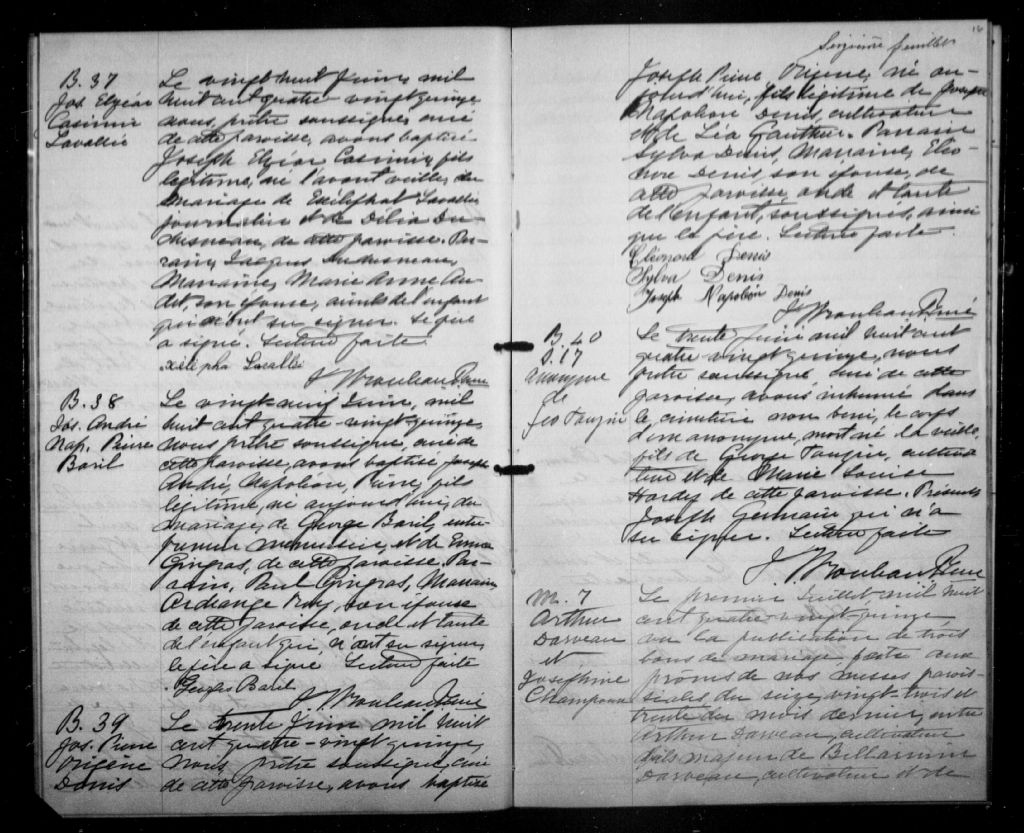 B. 37
Jos. Elzéar
Casimir
Lavallée
Le vingt huit Juin, mil
huit cent quatre vingt quinze
nous, prêtre soussigné, curé
de cette paroisse, avons baptisé
Joseph Elzéar Casimir, fils
légitime, né l'avant veille, du
mariage de Exéliphat Lavallée
journalier et de Délia Du-
chesneau, de cette paroisse. Par-
rain, Jacques Duchesneau,
Marraine, Marie Anne Au-
det, son épouse, aieuls de l'enfant
qui n'ont su signer. Le père
a signé. Lecture faite.
Xélipha Lavallée
J. V. Rouleau Ptre Curé
B. 38
Jos. André
Nap. Pierre
Baril
Le vingt-neuf Juin, mil
huit cent quatre-vingt-quinze,
nous prêtre soussigné, curé de
cette paroisse, avons baptisé Joseph
André, Napoléon, Pierre, fils
légitime, né aujourd'hui, du
mariage, de George Baril, entre-
preneur menuisier, et de Emma
Gingras, de cette paroisse. Par-
rain, Paul Gingras, Marraine
Archange Roy, son épouse
de cette paroisse, oncle et tante
de l'enfant qui, n'ont su signer
le père a signé Lecture faite
Georges Baril
J. V. Rouleau Ptre Curé
B. 39
Jos. Pierre
Origène
Denis
Le trente Juin mil huit
cent quatre-vingt quinze,
nous prêtre soussigné, curé
de cette paroisse, avons baptisé
16
Seizième feuillet
Joseph Pierre Origène, né au-
jourd'hui, fils légitime de Joseph
Napoléon Denis, cultivateur
et de Léa Gauthier. Parrain
Sylva Denis, Marraine, Eléo-
nore Denis, son épouse, de
cette paroisse, oncle et tante
de l'enfant, soussignés, ainsi
que le père. Lecture faite.
Eléonore Denis
Sylva Denis
Joseph Napoléon Denis
J. V. Rouleau Ptre Curé
B. 40
S. 17
Anonyme
de
Geo Fougère
Le trente Juin mil huit cent
quatre-vingt quinze, nous
prêtre soussigné curé de cette
paroisse, avons inhumé dans
le cimetière non beni, le corps
d'un anonyme, mort né la veille,
fils de George Fougère, cultiva-
teur et de Marie Louise
Hardy de cette paroisse. Présents
Joseph Germain qui n'a
su signer. Lecture faite
J. V. Rouleau Ptre Curé
M. 7
Arthur
Darveau
et
Josephine
Champoux
Le premier Juillet mil huit
cent quatre-vingt-quinze
vu la publication de trois
bans de mariage faite aux
prônes de nos messes parois-
siales du seize, vingt-trois et
trente du mois dernier, entre
Arthur Darveau, cultivateur
fils majeur de Bellarmin
Darveau, cultivateur et de